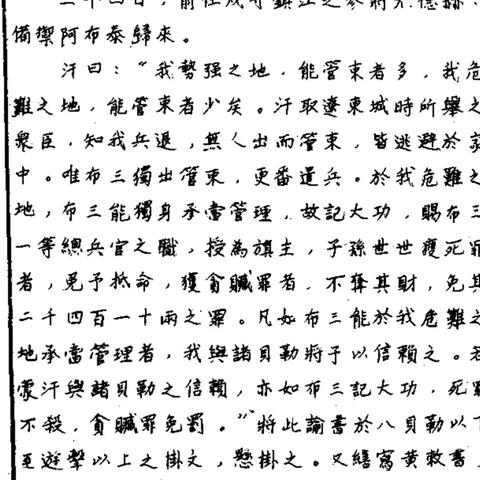 十四日，前往戍守鎮江之參將
備禦阿布泰歸來。
汗曰："我勢强之地，能管束者多，我危
難之地，能管束者少矣。汗取遼東城時所舉之
衆臣，知我兵退，無人出而管束，皆逃避於家
中。唯布三獨出管束，更番遣兵。於我危難之
地，布三能獨身承當管理，故記大功，賜布三
一等總兵官之職，授為旗主，子孫世世獲死罪
者，免予抵命，獲貪贓罪者，不奪其財，免其
二千四百一十兩之罪。凡如布三能於我危難之
地承當管理者，我與諸貝勒將予以信賴之。若
蒙汗與諸貝勒之信賴，亦如布三記大功，死罪
不殺，貪贓罪免罰。"將此諭書於八貝勒以下
至遊擊以上之掛文，懸掛之。又繕寫黄敕書，